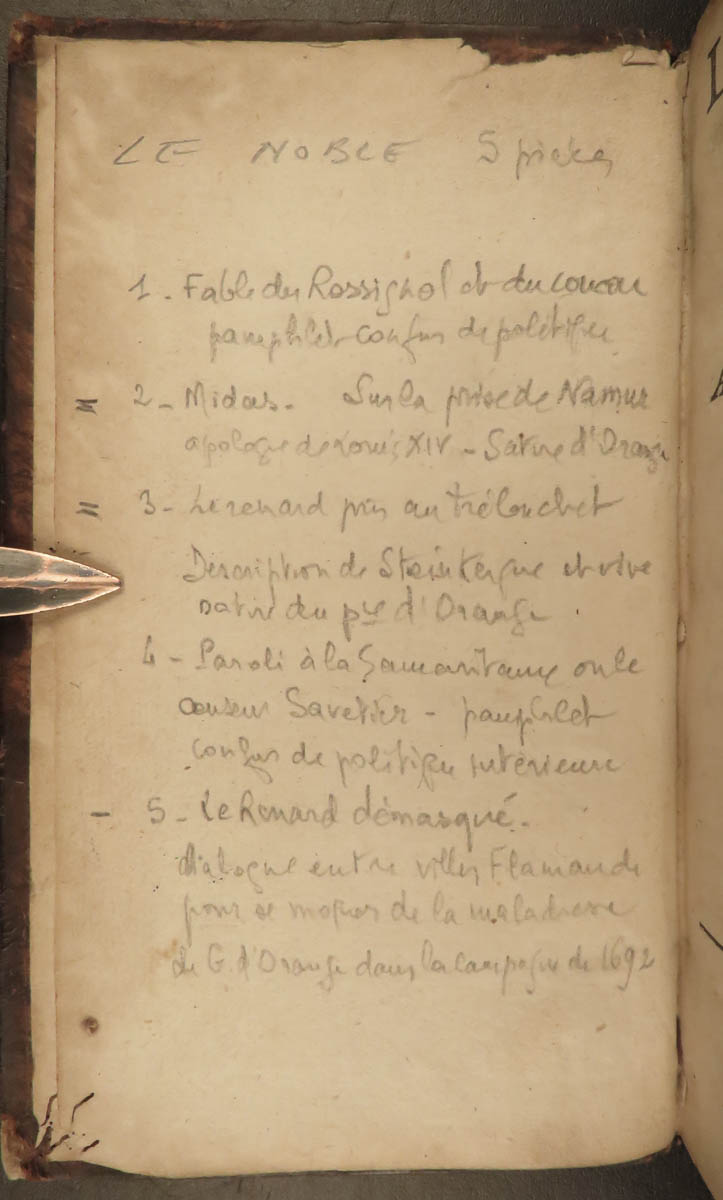 LE NOBLE 5 pièces
1. Fable du Rossignol et du coucou
pamphlet confus de politique
= 2 - Midas. Sur la prise de Namur
apologie de Louis XIV - Satire d'Orange
= 3 - Le renard pris au trébuchet
Description de Steinkerque et vive
satire du pce d'Orange
4 - Paroli à la Samaritaine ou le
censeur Savetier - pamphlet
confus de politique intérieure
- 5 - Le Renard démasqué.
dialogue entre villes Flamande
pour se moquer de la maladresse
de G. d'Orange dans la campagne de 1692